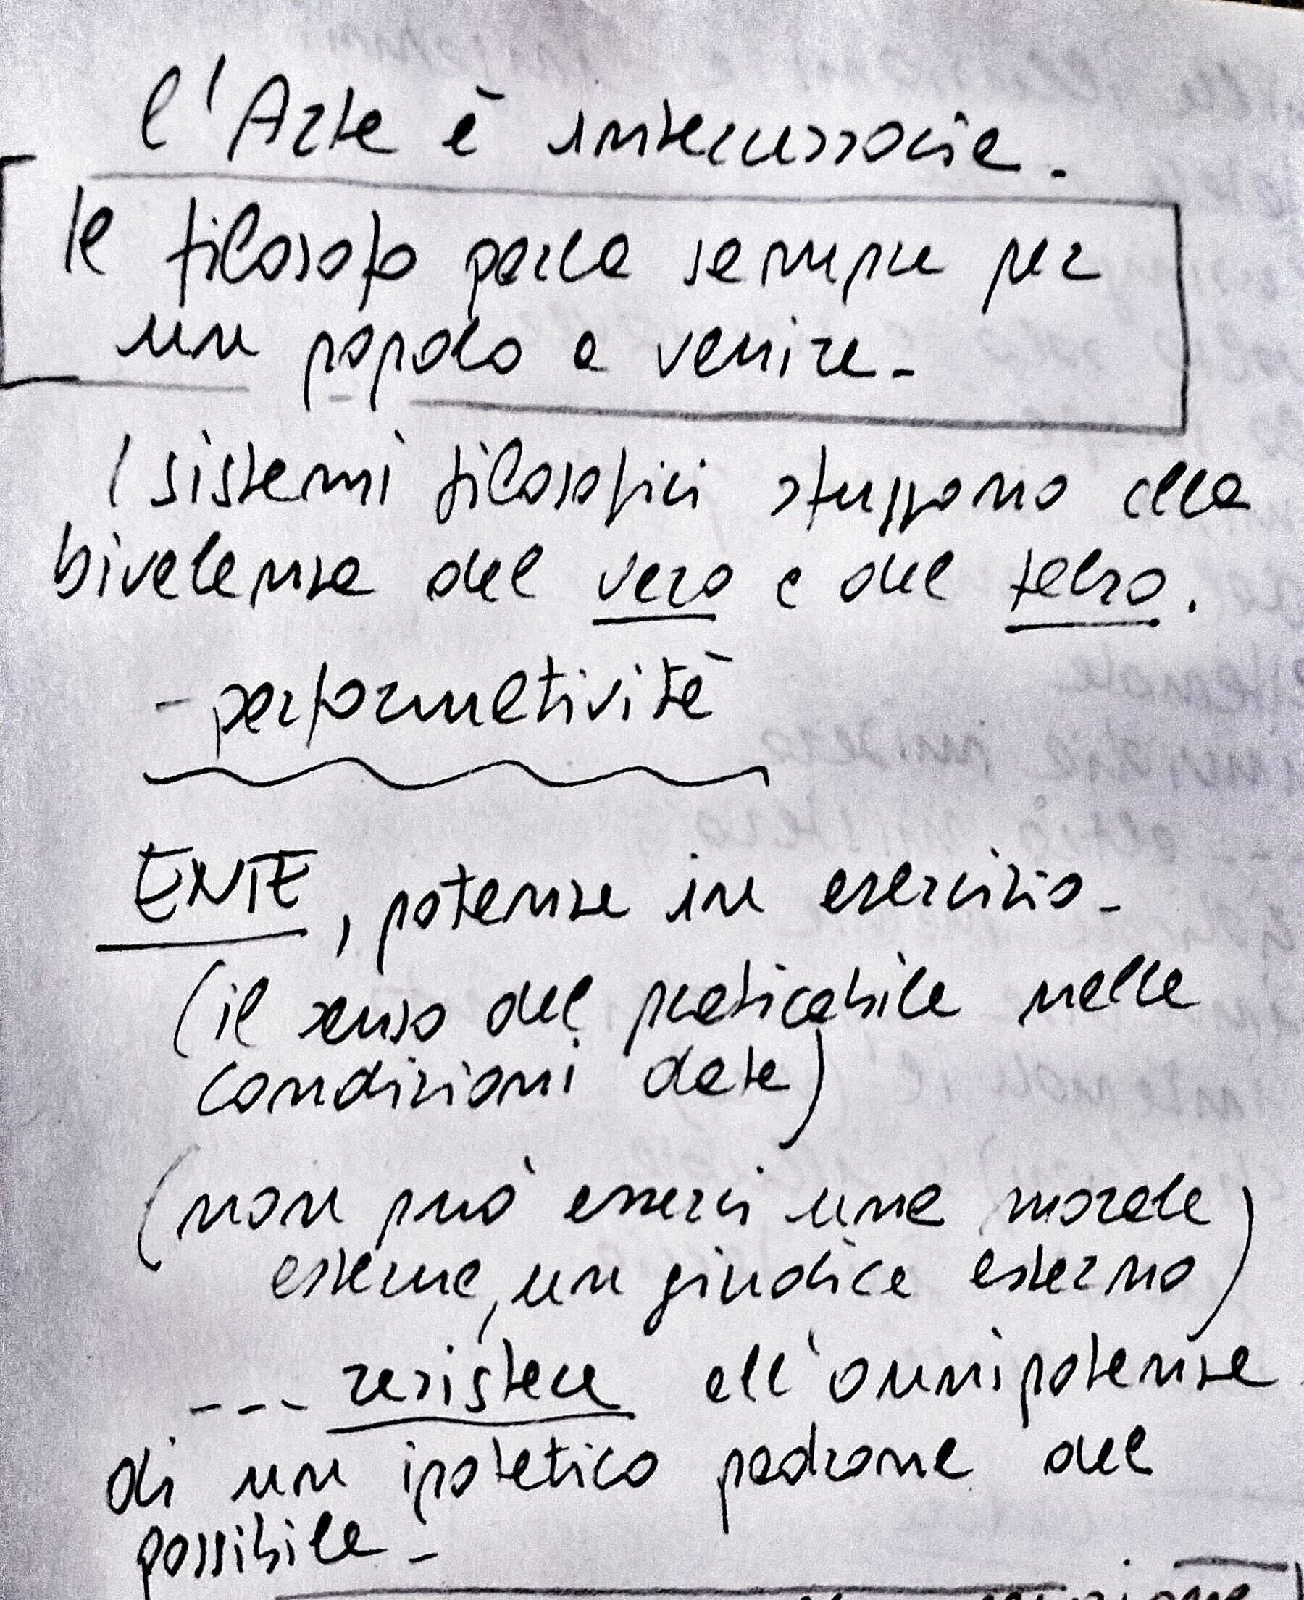 l'Arte è
Il filosofo parla sempre per
un popolo a venire -
I sistemi filosofici sfuggono alla
bivalenza del vero e del falso.
- performatività
ENTE, potenza in esercizio -
(il senso del praticabile nelle
condizioni date)
(non può esserci una morale
esterna, un giudice esterno)
--- resistere all'onnipotenza
di un ipotetico padrone del
possibile -